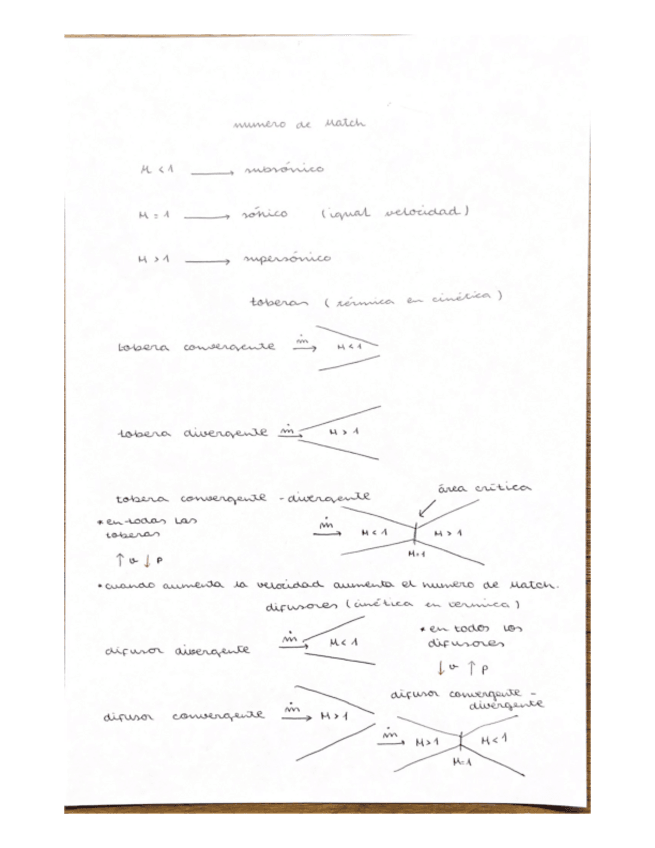 numero de Match
M < 1 → subsónico
M = 1 → sónico (igual velocidad)
M > 1 → supersónico
toberas (térmica en cinética)
tobera convergente ṁ M < 1
tobera divergente ṁ M > 1
tobera convergente - divergente
área crítica
* en todas las
toberas
↑ v ↓ p
ṁ M < 1 M > 1
M=1
* cuando aumenta la velocidad aumenta el numero de Match.
difusores (cinética en térmica)
difusor divergente ṁ M < 1
* en todos los
difusores
↓ v ↑ p
difusor convergente ṁ M > 1
difusor convergente -
divergente
ṁ M > 1 M < 1
M=1